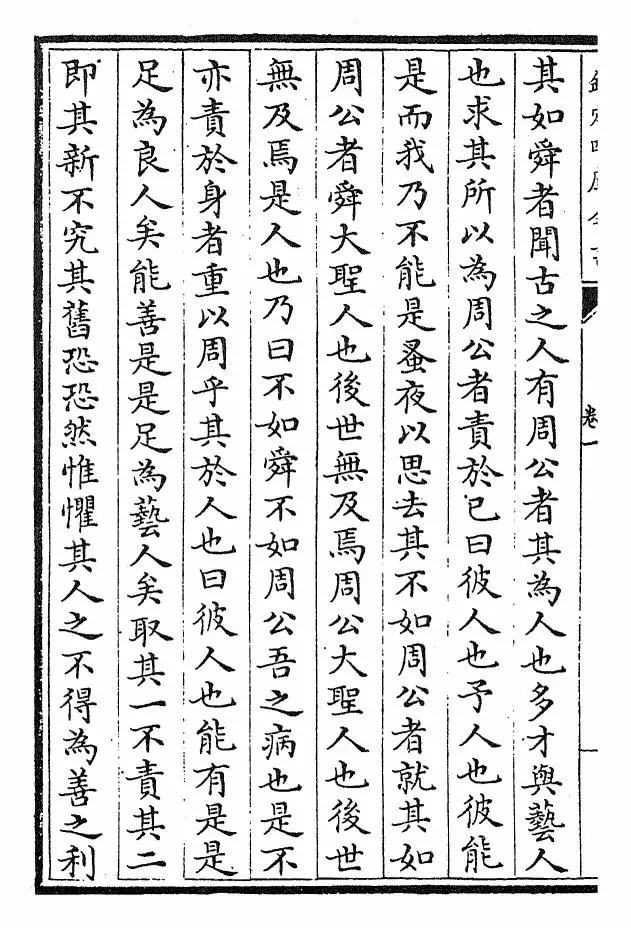 欽定四庫全書
卷一
其如舜者聞古之人有周公者其為人也多才與藝人
也求其所以為周公者責於已曰彼人也予人也彼能
是而我乃不能是蚤夜以思去其不如周公者就其如
周公者舜大聖人也後世無及焉周公大聖人也後世
無及焉是人也乃曰不如舜不如周公吾之病也是不
亦責於身者重以周乎其於人也曰彼人也能有是是
足為良人矣能善是是足為藝人矣取其一不責其二
即其新不究其舊恐恐然惟懼其人之不得為善之利